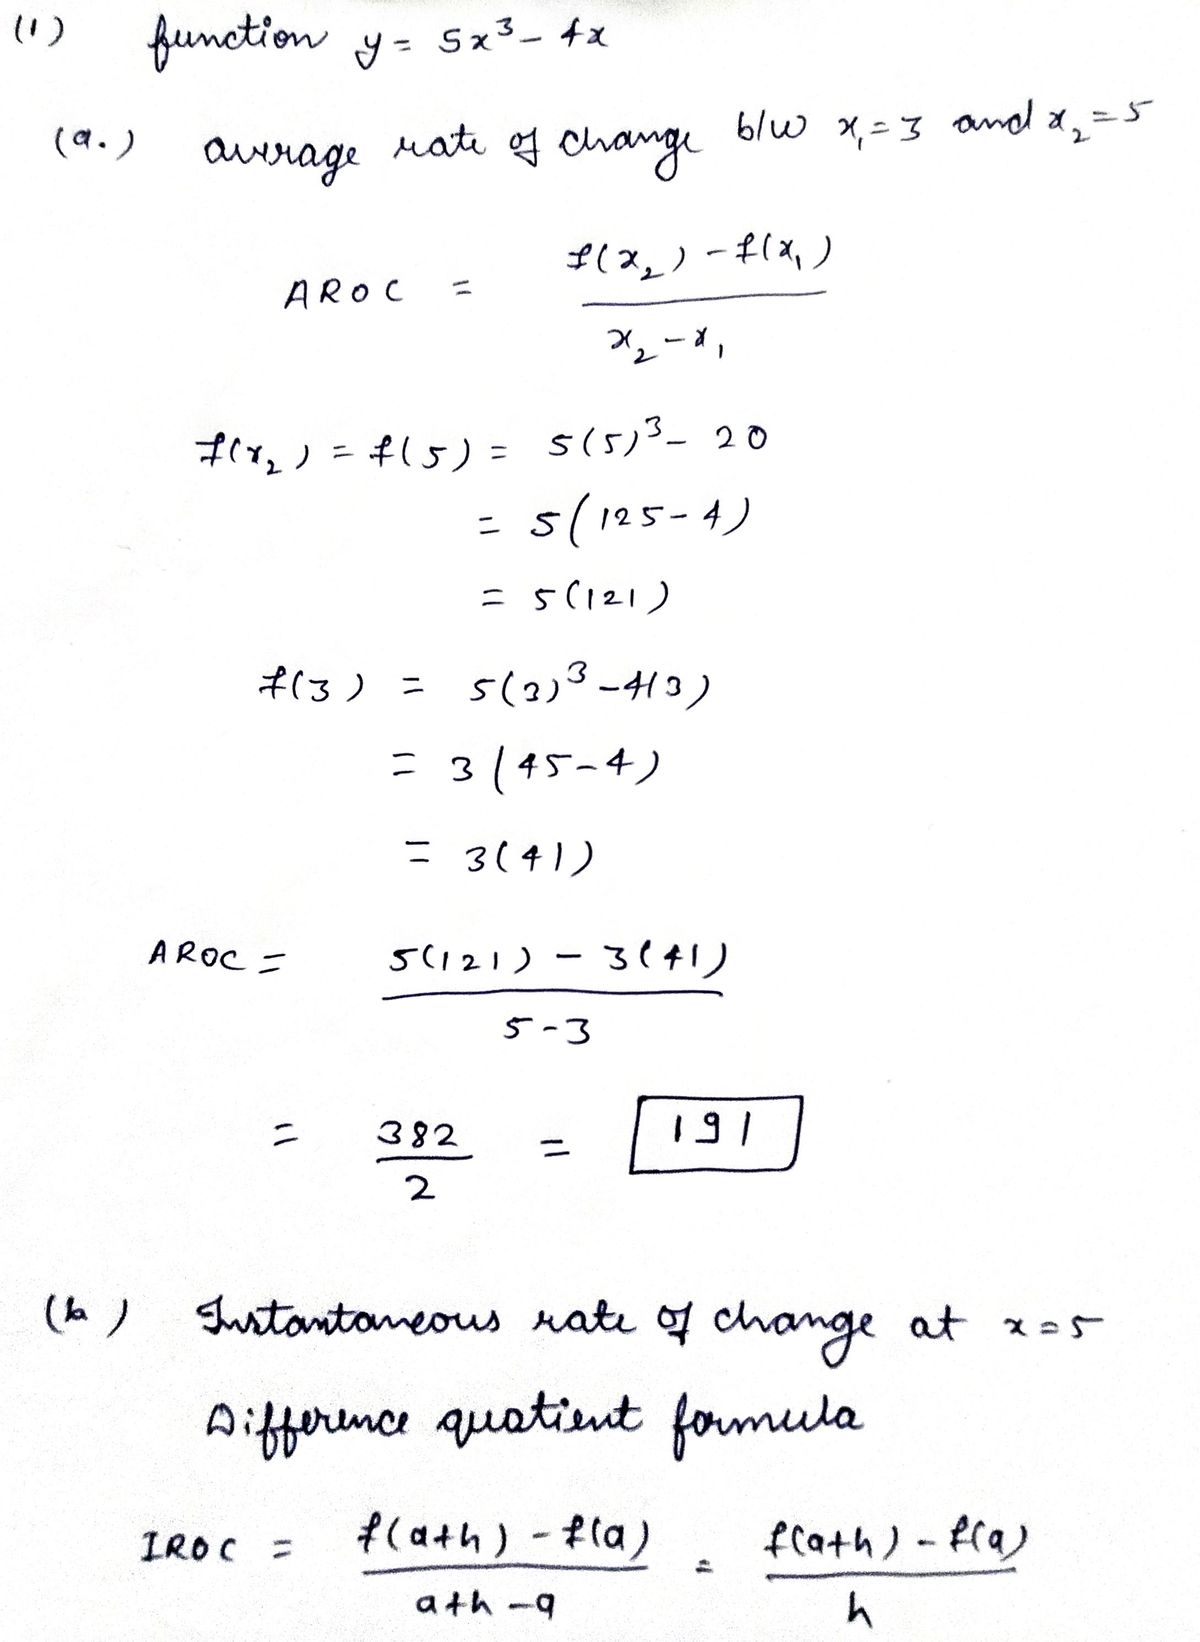 (1) function y = 5x³ - 4x
(a.) average rate of change b/w x₁ = 3 and x₂ = 5
AROC = f(x₂) - f(x₁) / x₂ - x₁
f(x₂) = f(5) = 5(5)³ - 20
= 5(125 - 4)
= 5(121)
f(3) = 5(3)³ - 4(3)
= 3(45 - 4)
= 3(41)
AROC = 5(121) - 3(41) / 5 - 3
= 382 / 2 = 191
(b) Instantaneous rate of change at x = 5
Difference quotient formula
IROC = f(a+h) - f(a) / a+h - a = f(a+h) - f(a) / h